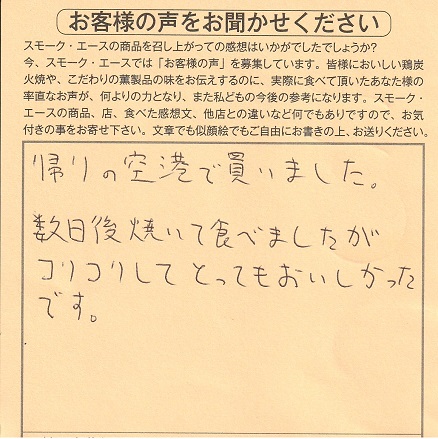 お客様の声をお聞かせください
スモーク・エースの商品を召し上がっての感想はいかがでしたでしょうか?
今、スモーク・エースでは「お客様の声」を募集しています。皆様においしい鶏炭
火焼や、こだわりの薫製品の味をお伝えするのに、実際に食べて頂いたあなた様の
率直なお声が、何よりの力となり、また私どもの今後の参考になります。スモーク・
エースの商品、店、食べた感想文、他店との違いなど何でもありですので、お気
付きの事をお寄せ下さい。文章でも似顔絵でもご自由にお書きの上、お送りください。
帰りの空港で買いました。
数日後焼いて食べましたが
コリコリしてとってもおいしかった
です。